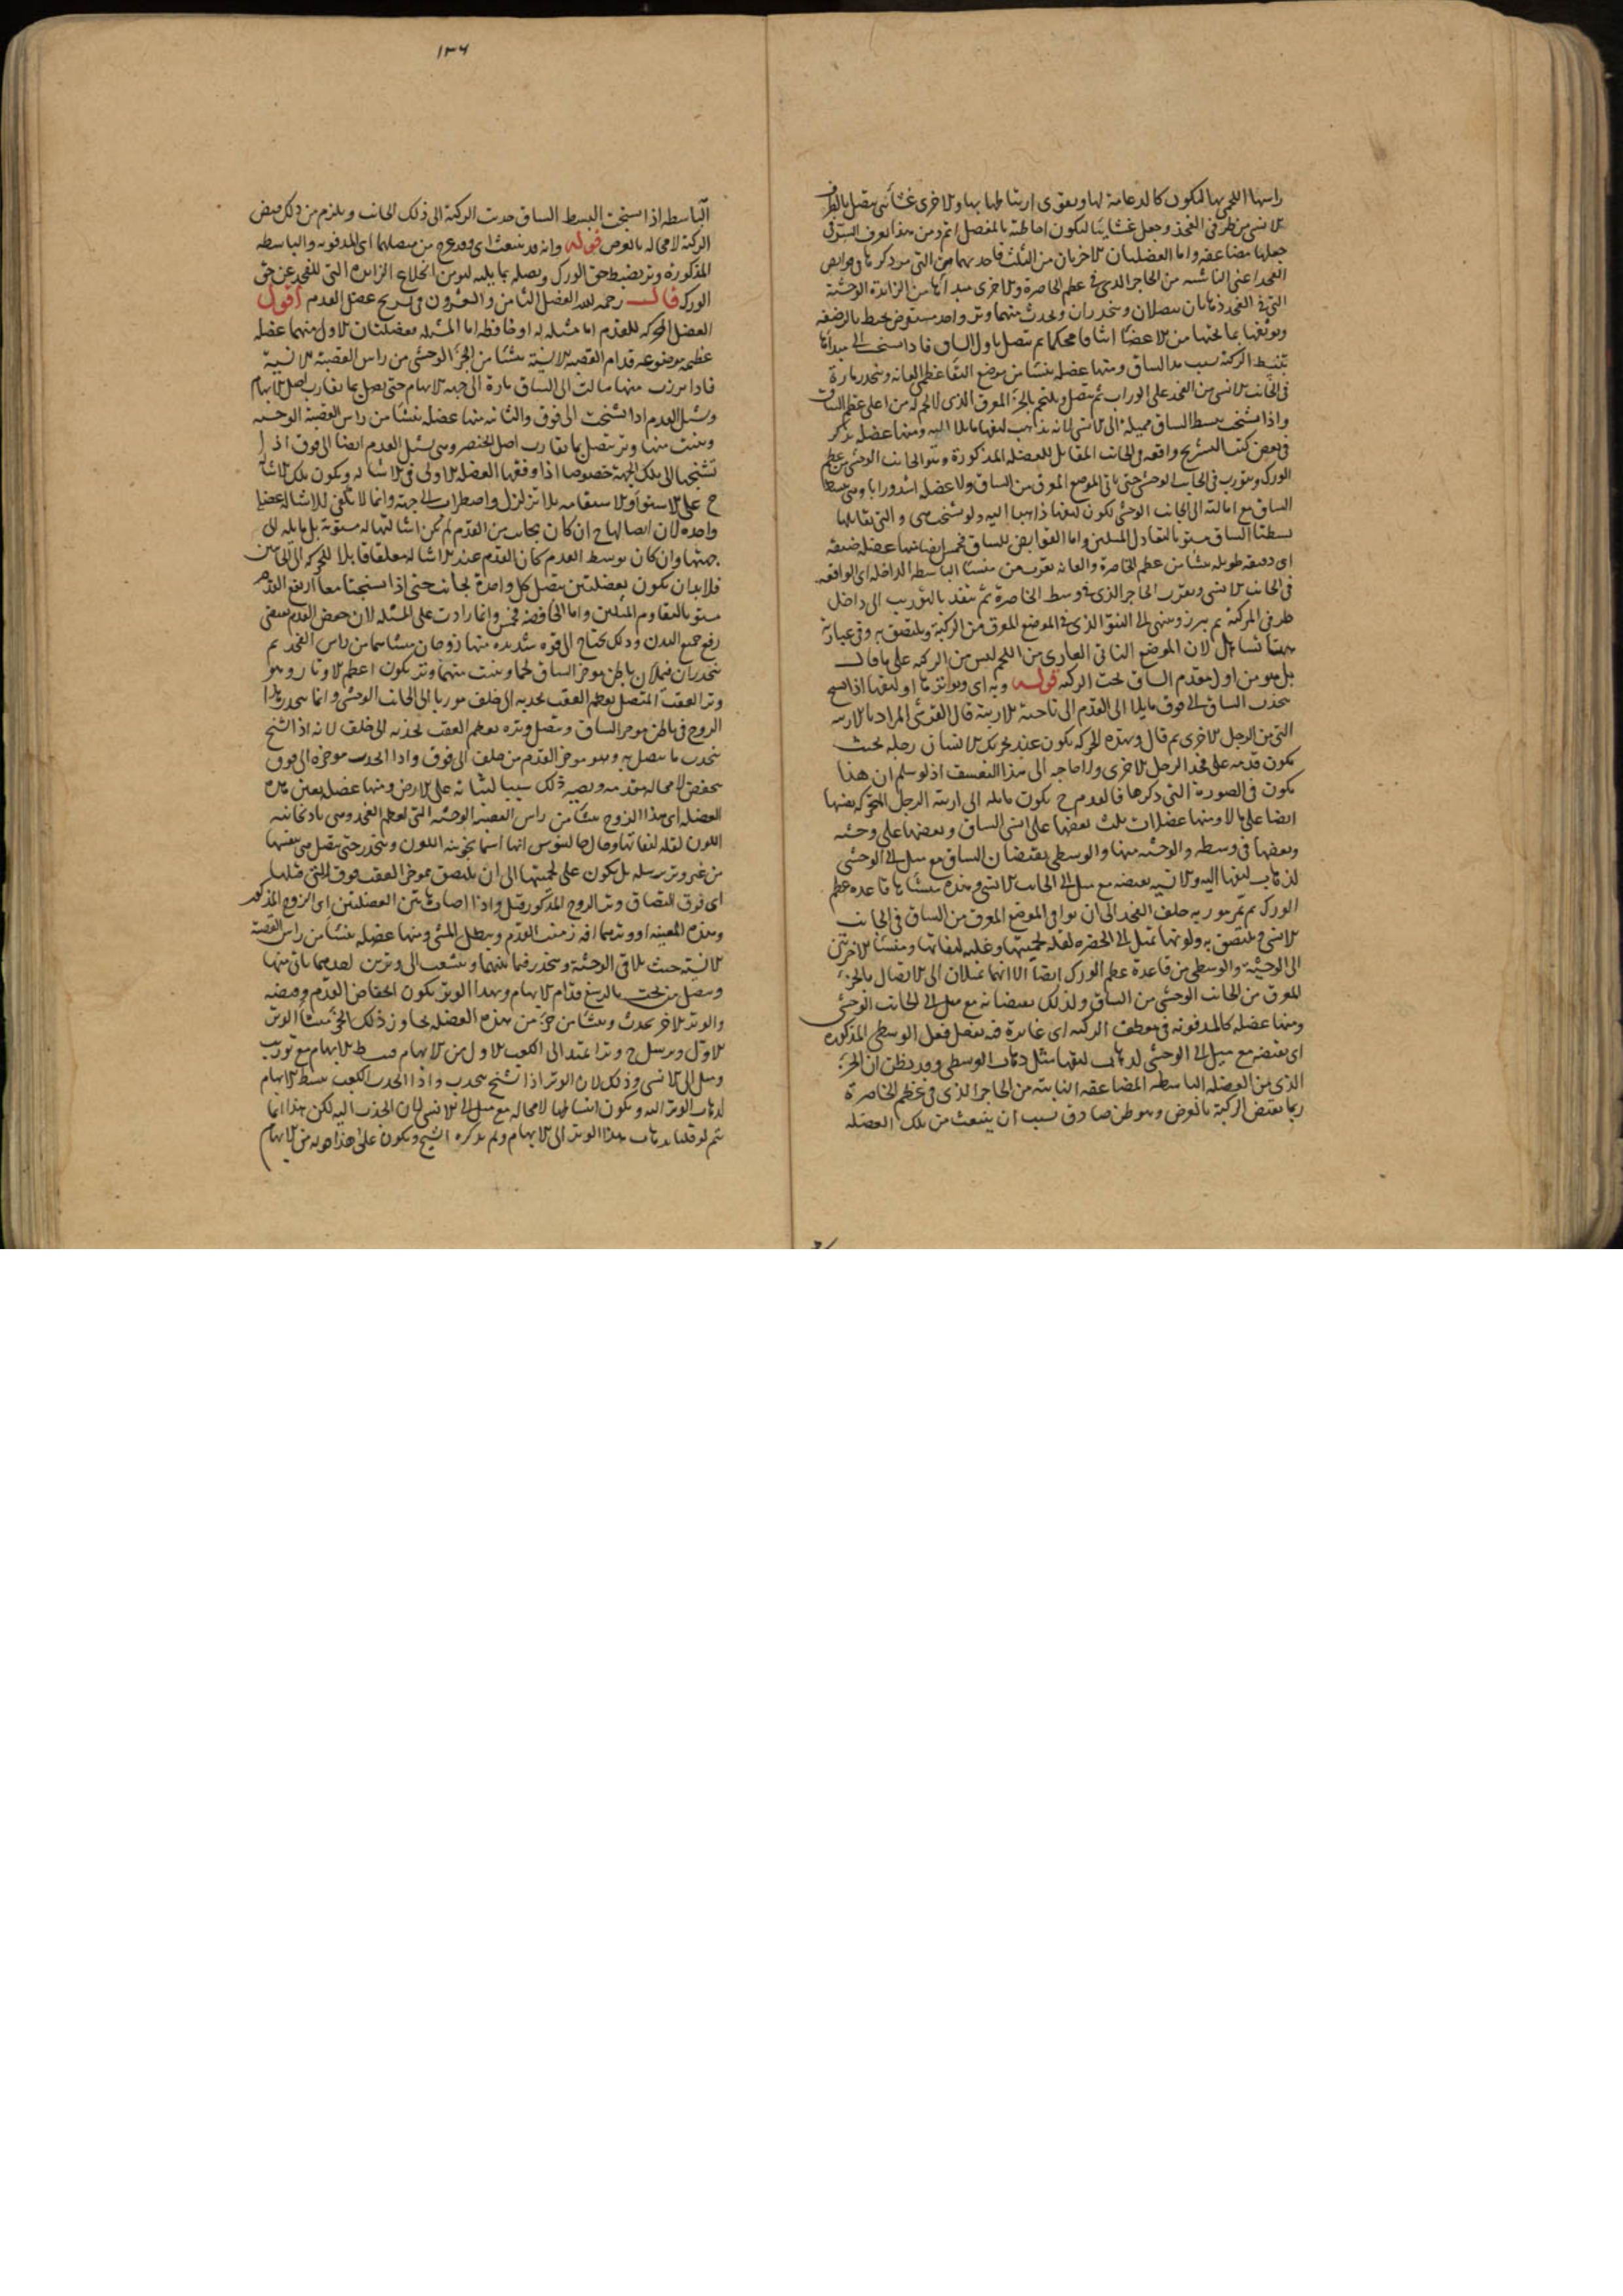 راسها اللحمى بها لتكون كالدعامة لها ويقوى ارتباطها بها والاخرى غشائى يتصل بالطرف
الانسى من طرفى الفخذ وجعل غشائيا لتكون احاطته بالمفصل اتم ومن هذا يعرف السر فى
جعلها مضاعفه واما العضلتان الاخريان من الثلث فاحديهما هى التى مر ذكرها فى قوابض
الفخذ اعنى الناشئه من الحاجز الذى فى عظم الخاصرة والاخرى مبداها من الزائدة الوحشية
التى فى الفخذ وهاتان يتصلان وينحدران ويحدث منهما وتر واحد مستعرض يحيط بالرضفه
ويوثقها بما تحتها من الاعضا ايثاقا محكما ثم يتصل باول الساق فاذا تشنجت الى مبداها
تنبسط الركبة بسبب مد الساق ومنها عضله ينشا من موضع التقا عظمى العانه وينحدر مارة
فى الجانب الانسى من الفخذ على الوراب ثم يتصل ويلتحم بالجزء المعرق الذى لا لحم له من اعلى عظم الساق
واذا تشنجت بسط الساق مميلة الى الانسى لانه يذاهب ليفها مايلا اليه ومنها عضله يذكر
فى بعض كتب التشريح واقعه فى الجانب المقابل للعضله المذكورة وهو الجانب الوحشى من عظم
الورك ويتورب فى الجانب الوحشى حتى ياتى الموضع المعرق من الساق ولا عضله اشد ورابا وهى تبسط
الساق مع امالته الى الجانب الوحشى لكون ليفها ذاهبا اليه ولو تشنجت هى والتى تقابلها
بسطتا الساق مستويا لتعادل الميلين واما القوابض للساق فخمس ايضا منها عضله ضيقه
اى دقيقه طويله ينشا من عظم الخاصرة والعانه بقرب من منشا الباسطه الداخله اى الواقعه
فى الجانب الانسى وبقرب الحاجز الذى فى وسط الخاصرة ثم ينفذ بالتوريب الى داخل
طرفى الركبة ثم يبرز وينتهى الى النتو الذى فى الموضع المعرق من الركبة ويلتصق به وفى عبارته
ههنا تساهل لان الموضع الناتى العارى من اللحم ليس من الركبه على ما قال
بل هو من اول مقدم الساق تحت الركبه قوله وبه اى وبواترها او ليفها اذا تشنج
ينجذب الساق الى فوق مايلا الى القدم الى ناحية الاربية قال القرشى المراد بالاربيه
التى من الرجل الاخرى ثم قال وهذه الحركه تكون عند تحريك الانسان رجله بحيث
يكون قدمه على فخذ الرجل الاخرى ولا حاجه الى هذا التعسف اذ لو سلم ان هذا
يكون فى الصورة التى ذكرها فالقدم ح يكون مايله الى اربيته الرجل المتحركه بعينها
ايضا على ما لا ومنها عضلات ثلث بعضها على انسى الساق وبعضها على وحشيه
وبعضها فى وسطه والوحشيه منها والوسطى يقبضان الساق مع ميل الى الوحشى
لذهاب ليفها اليه والانسيه يقبضه مع ميل الى الجانب الانسى وهذه منشاها قاعدة عظم
الورك ثم تمر موربه خلف الفخذ الى ان توافى الموضع المعرق من الساق فى الجانب
الانسى فيلتصق به ولونها تميل الى الخضره لقله لحميتها وغلبه ليفاتها ومنشا الاخرتين
الى الوحشية والوسطى من قاعدة عظم الورك ايضا الا انهما تميلان الى الاتصال بالجزء
المعرق من الجانب الوحشى من الساق ولذلك يقبضانه مع ميل الى الجانب الوحشى
ومنها عضله كالمدفونه فى معطف الركبه اى غايرة فيه يفعل فعل الوسطى المذكوره
اى يقبضه مع ميل الى الوحشى لذهاب ليفها مثل ذهاب الوسطى وقد يظن ان الجزء
الذى من العضله الباسطه المضاعفه النابته من الحاجز الذى فى عظم الخاصرة
ربما يقبض الركبة بالعرض وهو ظن صادق بسبب ان ينبعث من تلك العضله
١٣٤
الباسطه اذا تشنجت البسط الساق جذبت الركبة الى ذلك الجانب ويلزم من ذلك قبض
الركبة لا محاله بالعرض قوله وانه قد ينبعث اى وقد يخرج من متصلهما اى المدفونه والباسطه
المذكورة وتر يضبط حق الورك ويصله بما يليه ليؤمن انخلاع الزايده التى للفخذ عن حق
الورك قال رحمه الله الفصل الثامن والعشرون فى تشريح عضل القدم اقول
العضل المحركه للقدم اما مشيله له او خافظه اما المشيله فعضلتان الاول منهما عضله
عظيمه موضوعه قدام القصبة الانسية ينشا من الجزء الوحشى من راس القصبة الانسية
فاذا برزت منها مالت الى الساق مارة الى جهة الابهام حتى يتصل بما يقارب اصل الابهام
وتشيل القدم اذا تشنجت الى فوق والثانيه منها عضله ينشا من راس القصبة الوحشيه
وينبت منها وتر يتصل بما يقارب اصل الخنصر وهى تشيل القدم ايضا الى فوق اذ
تشنجها الى تلك الجهة خصوصا اذا وافقها العضله الاولى فى الاشاله ويكون تلك الاشالة
ح على الاستواء والاستقامه بلا تزلزل واضطراب الى جهة وانما لا تكفى للاشاله عضله
واحده لان اتصالها ح ان كان بجانب من القدم لم تكن اشالتها له مستوية بل مايله الى
جهتها وان كان بوسط القدم كان القدم عند الاشاله معلقا قابلا للحركه الى الجانبين
فلا بد ان تكون بعضلتين يتصل كل واحدة بجانب حتى اذا تشنجتا معا ارتفع القدم
مستويا لتقاوم الميلين واما الخافضه فخمس وانما زادت على المشيله لان خفض القدم يقتضى
رفع جميع البدن وذلك يحتاج الى قوه شديده منها زوجان ينشا منهما من راس الفخذ ثم
ينحدران فيملآن باطن موخر الساق لحما وينبت منهما وتر يكون اعظم الاوتار وهو
وتر العقب المتصل بعظم العقب يجذبه الى خلف موربا الى الجانب الوحشى وانما ينحدر هذا
الزوج فى باطن موخر الساق ويتصل وتره بعظم العقب لجذبه الى خلف لانه اذا تشنج
ينجذب ما يتصل به وهو موخر القدم من خلف الى فوق واذا انجذب موخره الى فوق
ينخفض لا محاله مقدمه ويصير ذلك سببا لثباته على الارض ومنها عضله يعين هذه
العضله اى هذا الزوج ينشا من راس القصبة الوحشيه التى لعظم الفخذ وهى باذنجانيه
اللون لقله ليفاتها وقال جالينوس انها اسمانجونيه اللون وينحدر حتى يتصل هى بنفسها
من غير وتر يرسله بل يكون على لحميتها الى ان يلتصق بموخر العقب فوق التى قبلها
اى فوق التصاق وتر الزوج المذكور قيل واذا اصاب هاتين العضلتين اى الزوج المذكور
وهذه المعينه او وتريهما افه زمنت القدم وبطل المشى ومنها عضله ينشا من راس القصبة
الانسيه حيث يلاقى الوحشية وينحدر فيما بينهما وينشعب الى وترين احدهما ياتى منها
ويتصل من تحت بالرسغ قدام الابهام وبهذا الوتر يكون انخفاض القدم وقبضه
والوتر الاخر يحدث وينشا من جزء من هذه العضله يجاوز ذلك الجزء منشا الوتر
الاول ويرسل ح وترا يمتد الى الكعب الاول من الابهام فيبسط الابهام مع توريب
وميل الى الانسى وذلك لان الوتر اذا تشنج ينجذب واذا انجذب الكعب يبسط الابهام
لذهاب الوتر اليه ويكون انبساطها لا محاله مع ميل الى الانسى لان الجذب اليه لكن هذا انما
يتم لو قلنا بذهاب هذا الوتر الى الابهام ولم يذكره الشيخ ويكون على هذا هربه من الابهام